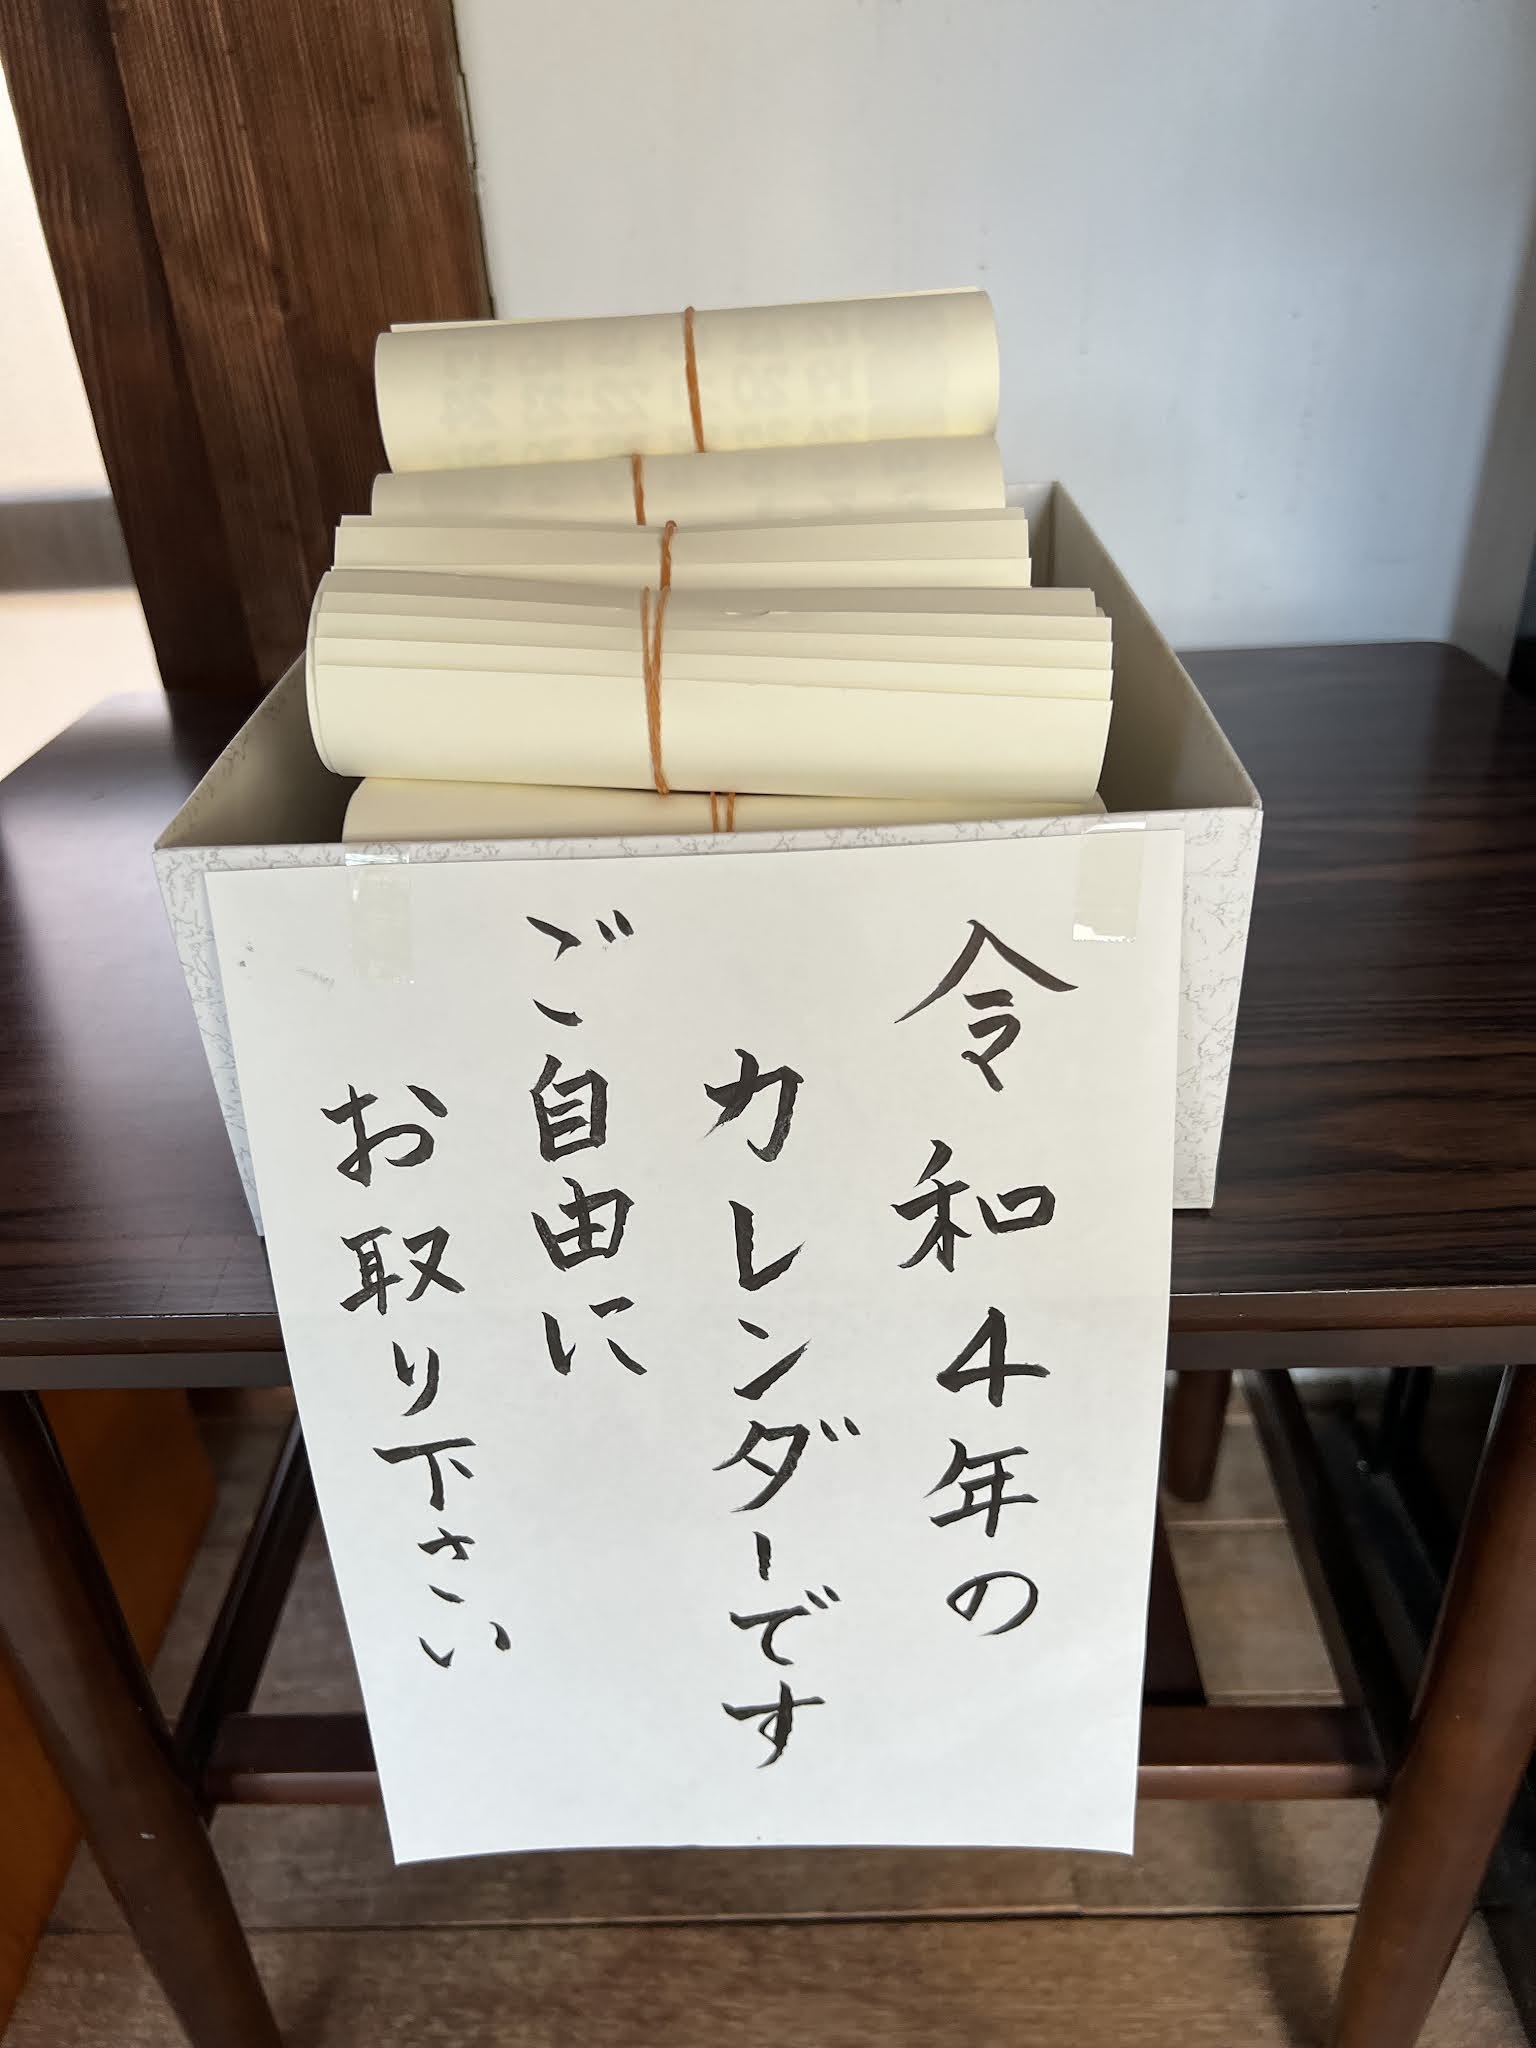 令和4年の
カレンダーです
ご自由に
お取り下さい